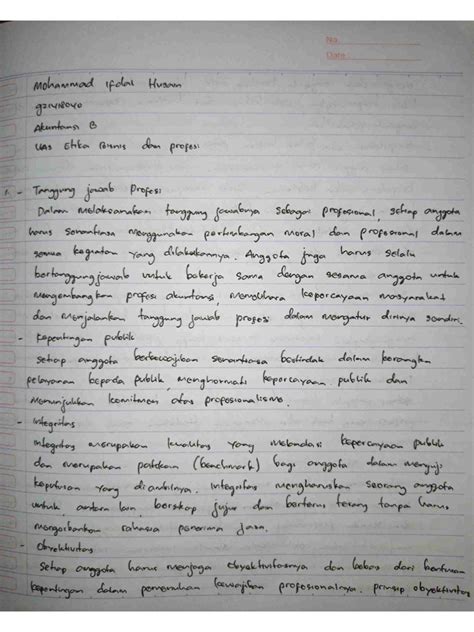 No :
Date :
Mohammad Ifdal Husain
Akuntansi B
UAS Etika Bisnis dan profesi
1. - Tanggung jawab Profesi
Dalam melaksanakan tanggung jawabnya sebagai profesional, setiap anggota
harus senantiasa menggunakan pertimbangan moral dan profesional dalam
semua kegiatan yang dilakukannya. Anggota juga harus selalu
bertanggungjawab untuk bekerja sama dengan sesama anggota untuk
mengembangkan profesi akuntansi, memelihara kepercayaan masyarakat
dan menjalankan tanggung jawab profesi dalam mengatur dirinya sendiri.
- Kepentingan publik
setiap anggota berkewajiban senantiasa bertindak dalam kerangka
pelayanan kepada publik, menghormati kepercayaan publik dan
Menunjukkan komitmen atas profesionalisme.
- Integritas
Integritas merupakan kualitas yang melandasi kepercayaan publik
dan merupakan patokan (benchmark) bagi anggota dalam menguji
keputusan yang diambilnya. Integritas mengharuskan seorang anggota
untuk, antara lain, bersikap jujur dan berterus terang tanpa harus
mengorbankan rahasia penerima jasa.
- Obyektivitas
Setiap anggota harus menjaga obyektivitasnya dan bebas dari benturan
kepentingan dalam pemenuhan kewajiban profesionalnya. prinsip obyektivitas